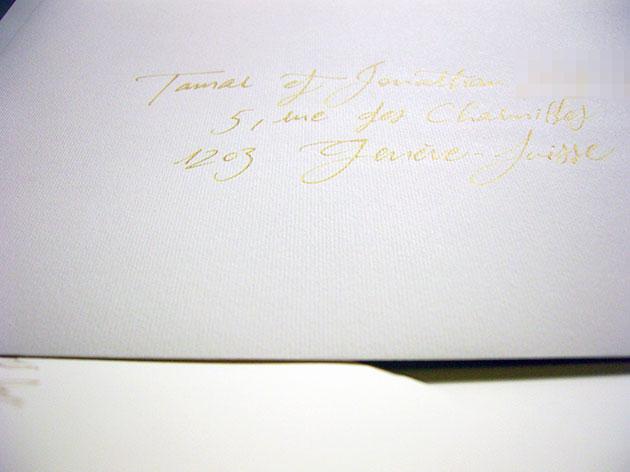 Tamar et Jonathan
5, rue des Charmilles
1203 Genève - Suisse